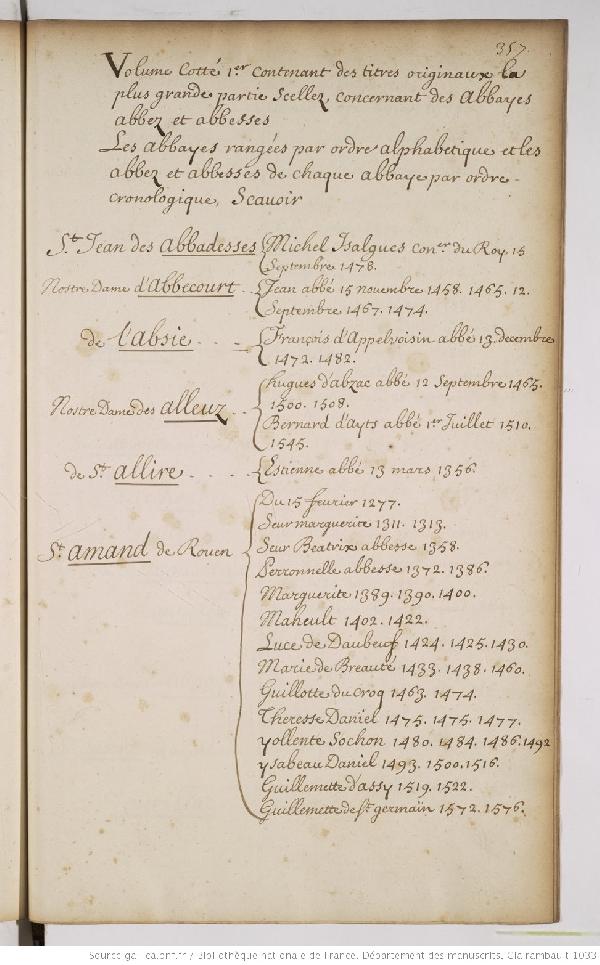 357.
Volume Cotté 1er contenant des titres originaux la
plus grande partie Scellez, concernant des Abbayes
abbez et abbesses
Les abbayes rangées par ordre alphabetique et les
abbez et abbesses de chaque abbaye par ordre
cronologique, Scavoir
St. Jean des Abbadesses Michel Isalgues coner du Roy 15
Septembre 1478.
Nostre Dame d'Abbecourt Jean abbé 15 novembre 1458. 1465. 12.
Septembre 1467. 1474.
de l'absie François d'Appelvoisin abbé 13 decembre
1472. 1482.
hugues d'abzac abbé 12 Septembre 1465.
Nostre Dame des alleuz 1500. 1508.
Bernard d'Ayts abbé 1er Juillet 1510.
1545.
de St. allire Estienne abbé 13 mars 1356.
Du 15 feurier 1277.
Seur marguerite 1311. 1313.
St. amand de Rouen Seur Beatrix abbesse 1358.
Perronnelle abbesse 1372. 1386.
Marguerite 1389. 1390. 1400.
Maheult 1402. 1422.
Luce de Daubeuf 1424. 1425. 1430.
Marie de Breauté 1433. 1438. 1460.
Guillotte du croq 1463. 1474.
Theresse Daniel 1475. 1475. 1477.
yollente Sochon 1480. 1484. 1486. 1492
ysabeau Daniel 1493. 1500. 1516.
Guillemette d'assy 1519. 1522.
Guillemette de St. germain 1572. 1576.
Source gallica.bnf.fr / Bibliothèque nationale de France. Département des manuscrits. Clairambault 1033